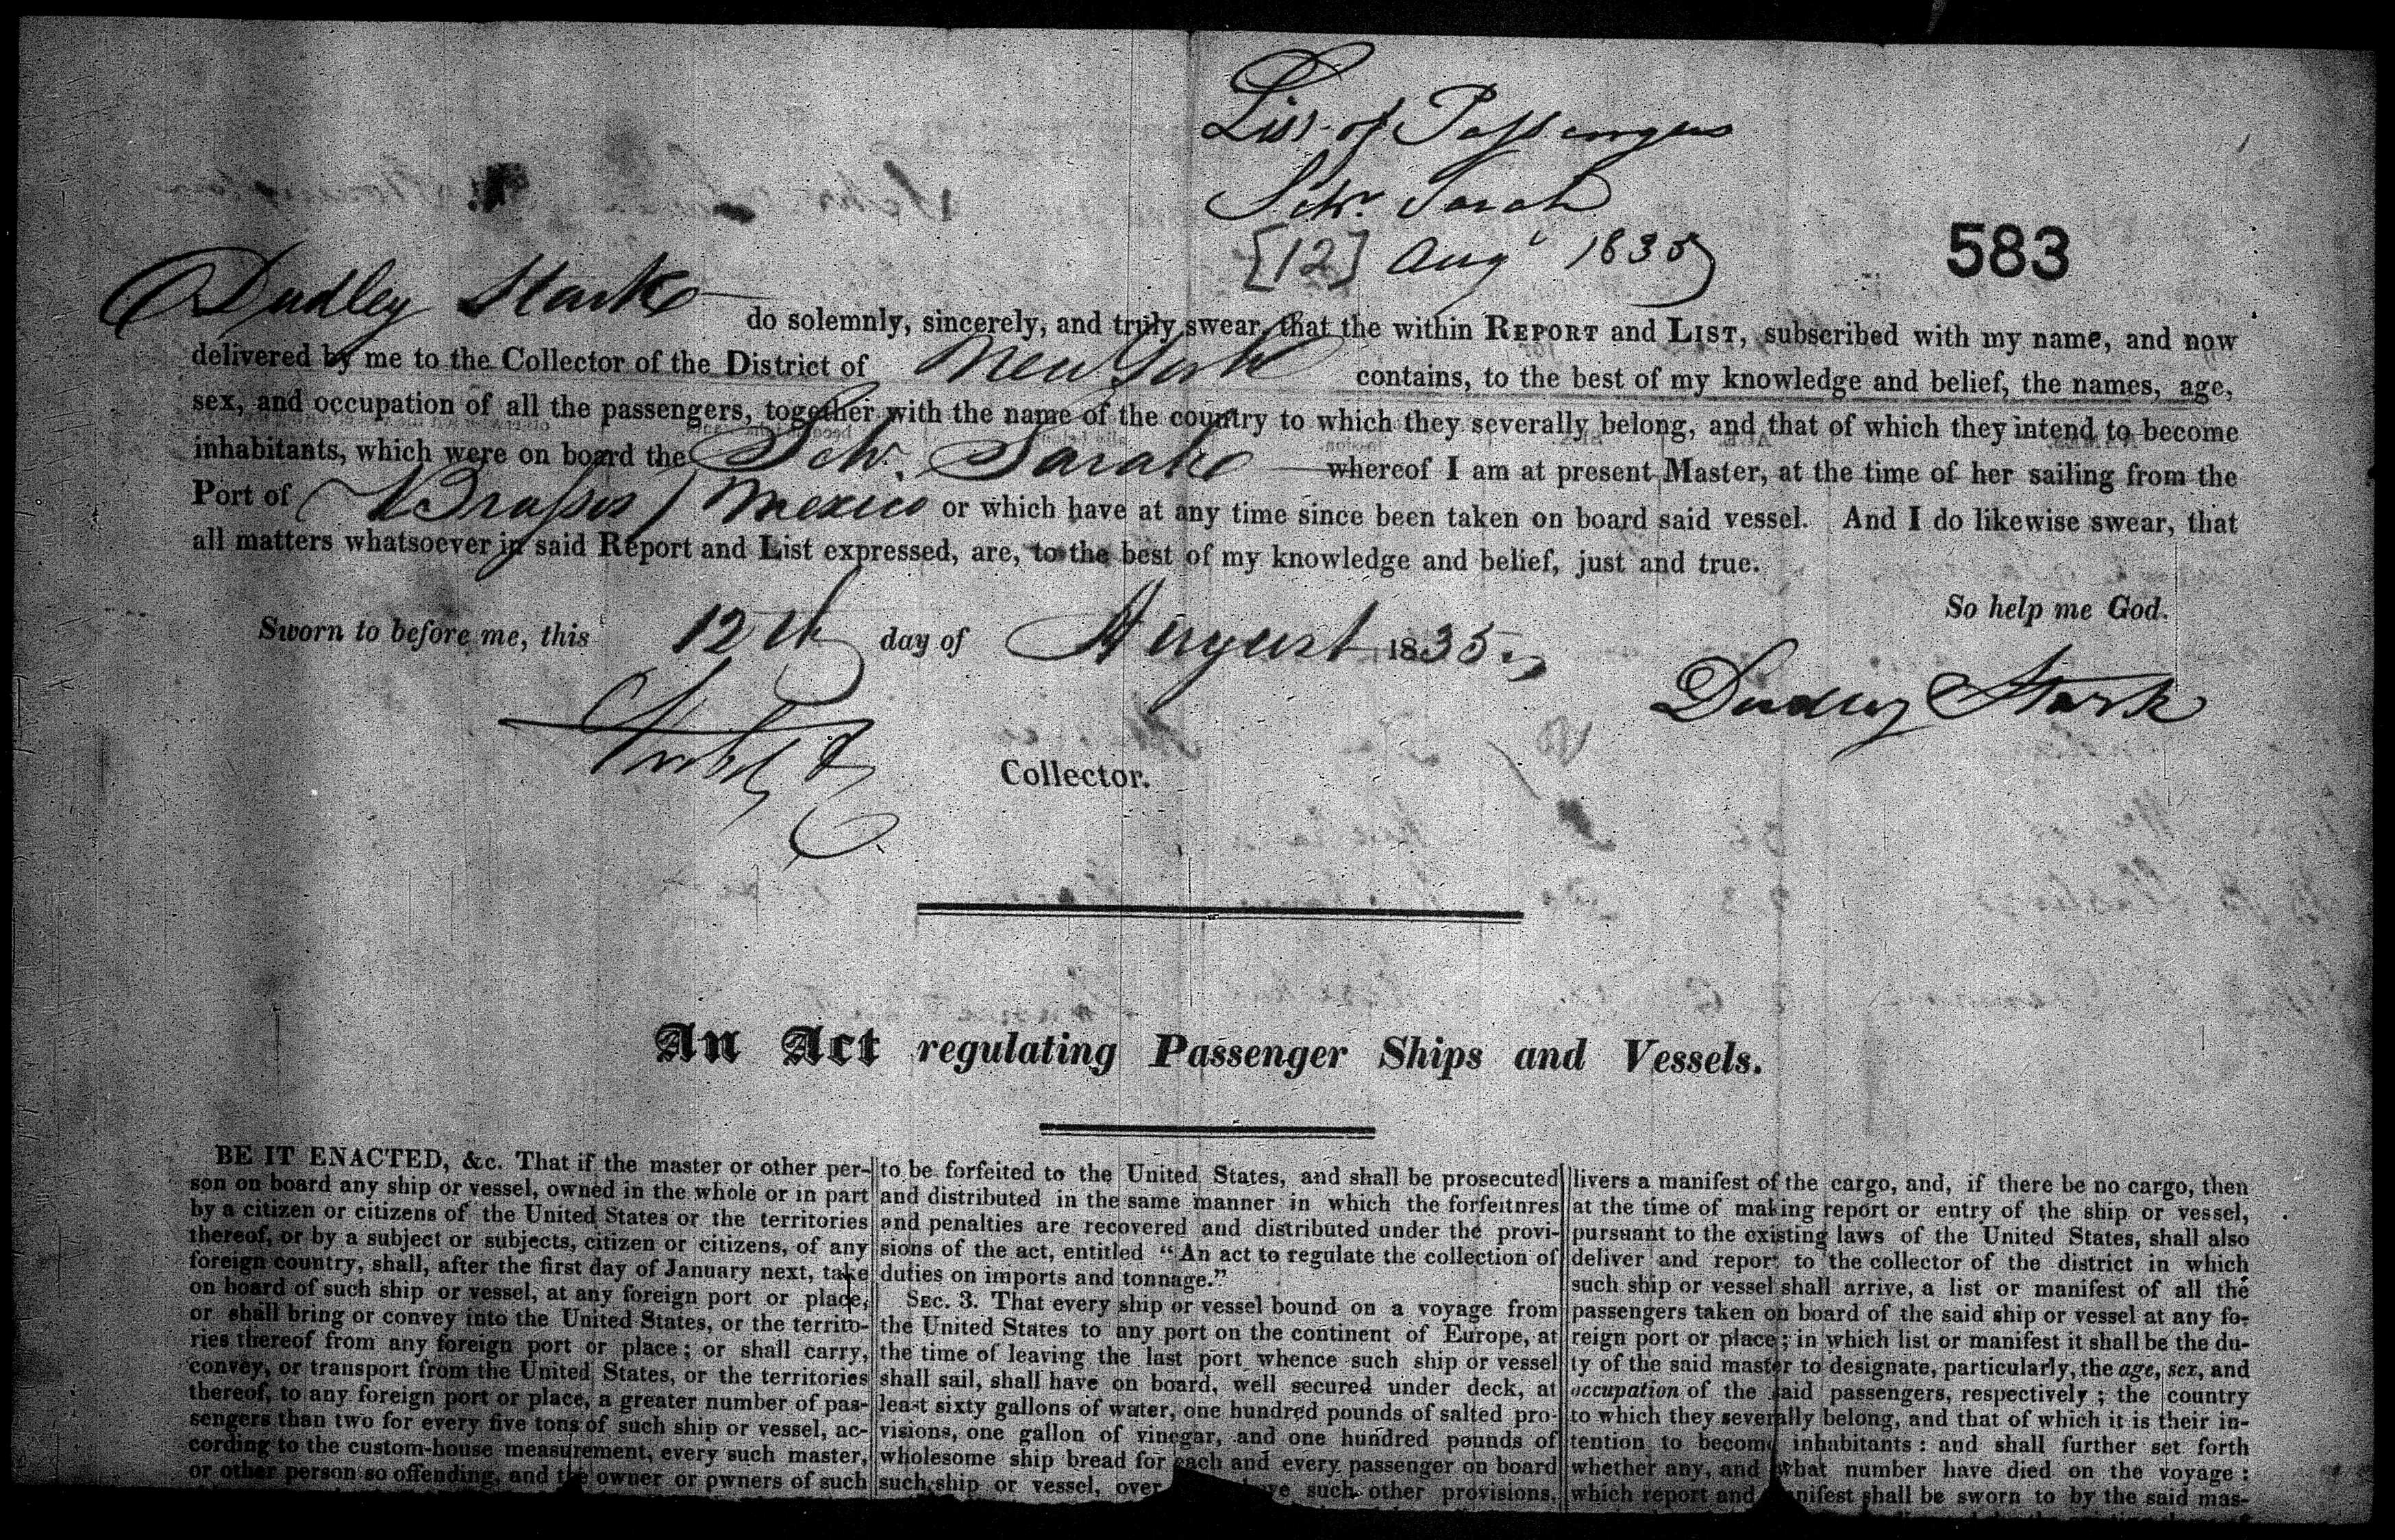 List of Passengers
Schr. Sarah
[12] Aug 1835
583
Dudley Stark do solemnly, sincerely, and truly swear, that the within REPORT and LIST, subscribed with my name, and now
delivered by me to the Collector of the District of New York contains, to the best of my knowledge and belief, the names, age,
sex, and occupation of all the passengers, together with the name of the country to which they severally belong, and that of which they intend to become
inhabitants, which were on board the Schr. Sarah whereof I am at present Master, at the time of her sailing from the
Port of Brassos / Mexico or which have at any time since been taken on board said vessel. And I do likewise swear, that
all matters whatsoever in said Report and List expressed, are, to the best of my knowledge and belief, just and true.
So help me God.
Sworn to before me, this 12th day of August 1835
Dudley Stark
Collector.
An Act regulating Passenger Ships and Vessels.
BE IT ENACTED, &c. That if the master or other per-
son on board any ship or vessel, owned in the whole or in part
by a citizen or citizens of the United States or the territories
thereof, or by a subject or subjects, citizen or citizens, of any
foreign country, shall, after the first day of January next, take
on board of such ship or vessel, at any foreign port or place,
or shall bring or convey into the United States, or the territo-
ries thereof from any foreign port or place; or shall carry,
convey, or transport from the United States, or the territories
thereof, to any foreign port or place, a greater number of pas-
sengers than two for every five tons of such ship or vessel, ac-
cording to the custom-house measurement, every such master,
or other person so offending, and the owner or owners of such
to be forfeited to the United States, and shall be prosecuted
and distributed in the same manner in which the forfeitnres
and penalties are recovered and distributed under the provi-
sions of the act, entitled “An act to regulate the collection of
duties on imports and tonnage.”
SEC. 3. That every ship or vessel bound on a voyage from
the United States to any port on the continent of Europe, at
the time of leaving the last port whence such ship or vessel
shall sail, shall have on board, well secured under deck, at
least sixty gallons of water, one hundred pounds of salted pro-
visions, one gallon of vinegar, and one hundred pounds of
wholesome ship bread for each and every passenger on board
such ship or vessel, over such other provisions,
livers a manifest of the cargo, and, if there be no cargo, then
at the time of making report or entry of the ship or vessel,
pursuant to the existing laws of the United States, shall also
deliver and report to the collector of the district in which
such ship or vessel shall arrive, a list or manifest of all the
passengers taken on board of the said ship or vessel at any fo-
reign port or place; in which list or manifest it shall be the du-
ty of the said master to designate, particularly, the age, sex, and
occupation of the said passengers, respectively; the country
to which they severally belong, and that of which it is their in-
tention to become inhabitants: and shall further set forth
whether any, and what number have died on the voyage:
which report and manifest shall be sworn to by the said mas-